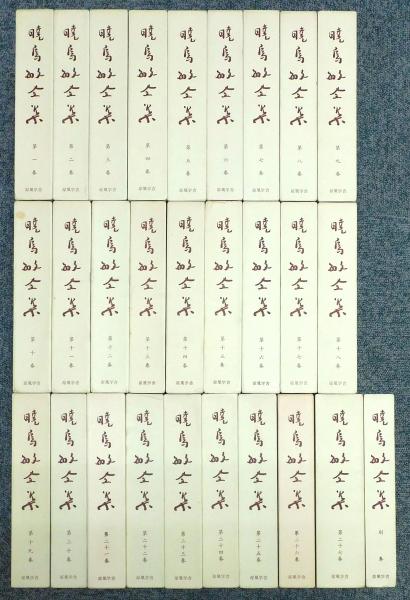 曉烏敏全集
第一巻
涼風学舎
曉烏敏全集
第二巻
涼風学舎
曉烏敏全集
第三巻
涼風学舎
曉烏敏全集
第四巻
涼風学舎
曉烏敏全集
第五巻
涼風学舎
曉烏敏全集
第六巻
涼風学舎
曉烏敏全集
第七巻
涼風学舎
曉烏敏全集
第八巻
涼風学舎
曉烏敏全集
第九巻
涼風学舎
曉烏敏全集
第十巻
涼風学舎
曉烏敏全集
第十一巻
涼風学舎
曉烏敏全集
第十二巻
涼風学舎
曉烏敏全集
第十三巻
涼風学舎
曉烏敏全集
第十四巻
涼風学舎
曉烏敏全集
第十五巻
涼風学舎
曉烏敏全集
第十六巻
涼風学舎
曉烏敏全集
第十七巻
涼風学舎
曉烏敏全集
第十八巻
涼風学舎
曉烏敏全集
第十九巻
涼風学舎
曉烏敏全集
第二十巻
涼風学舎
曉烏敏全集
第二十一巻
涼風学舎
曉烏敏全集
第二十二巻
涼風学舎
曉烏敏全集
第二十三巻
涼風学舎
曉烏敏全集
第二十四巻
涼風学舎
曉烏敏全集
第二十五巻
涼風学舎
曉烏敏全集
第二十六巻
涼風学舎
曉烏敏全集
第二十七巻
涼風学舎
曉烏敏全集
別巻
涼風学舎